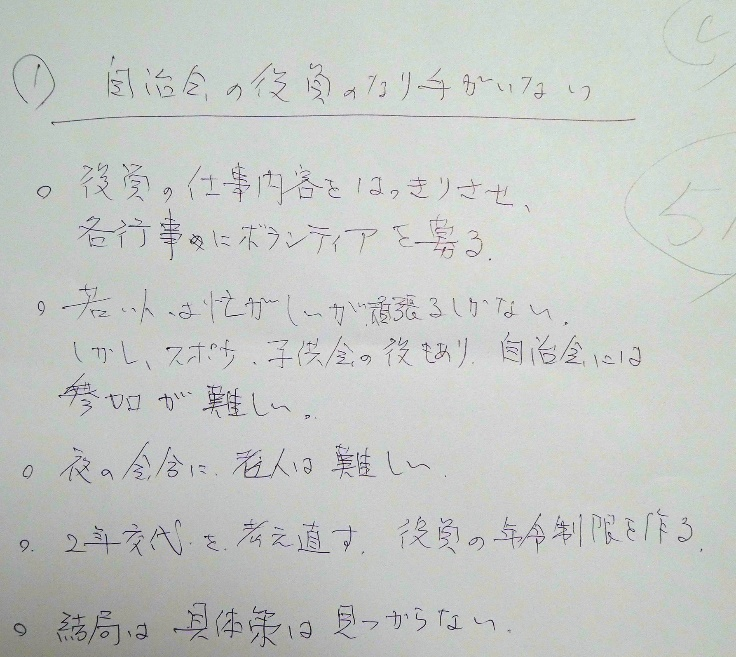 ① 自治会の役員のなり手がいない
○ 役員の仕事内容をはっきりさせ、
各行事にボランティアを募る.
○ 若い人は忙がしいが頑張るしかない.
しかし、スポ少.子供会の役もあり.自治会には
参加が難しい。
○ 夜の会合に.老人は難しい.
○. 2年交代.を.考え直す.役員の年令制限を作る.
○ 結局は 具体策は見つからない.